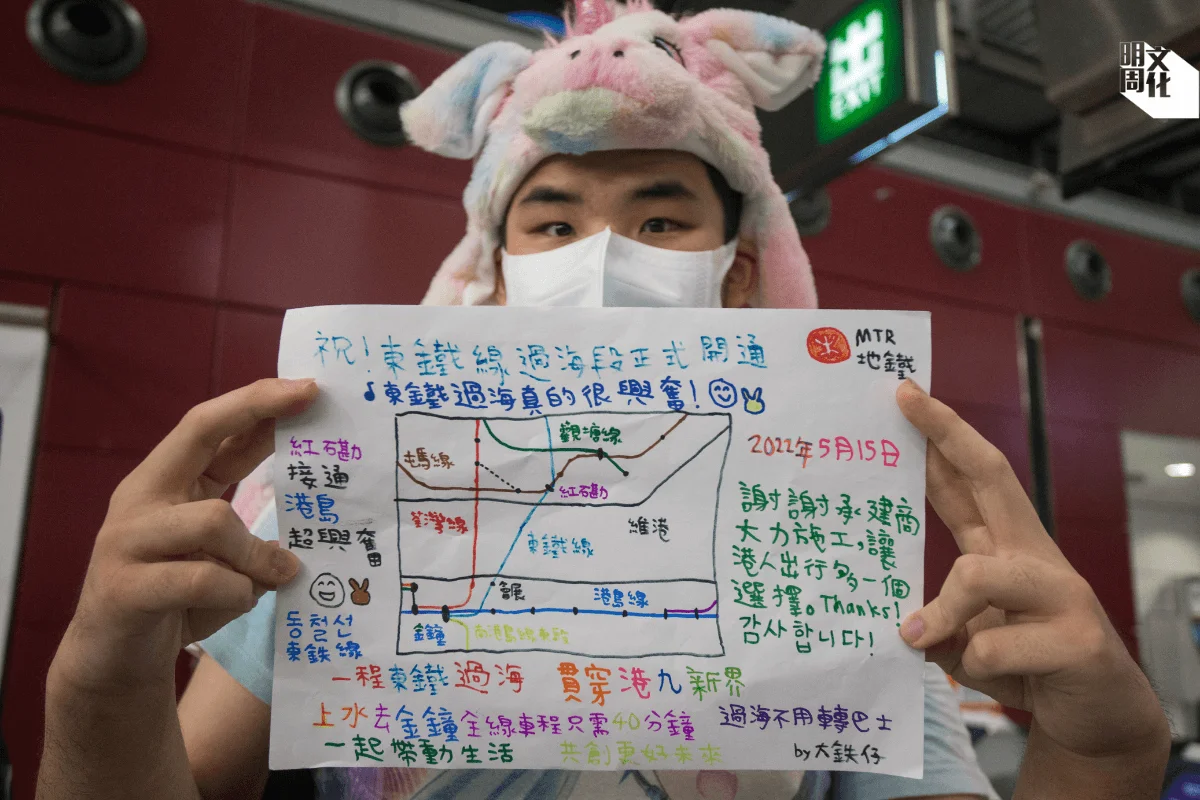 明周文化
出
EXIT
祝!東鐵線過海段正式開通
MTR
地鐵
♪東鐵過海真的很興奮!
2022年5月15日
紅石磡
接通
港島
超興奮
동철선
東鉄線
觀塘線
屯馬線
紅石磡
荃灣線
維港
東鐵線
會展
港島線
金鐘
南港島線東段
謝謝承建商
大力施工,讓
港人出行多一個
選擇。Thanks!
감사합니다!
一程東鐵過海 貫穿港九新界
上水去金鐘全線車程只需40分鐘 過海不用轉巴士
一起帶動生活 共創更好未來
by大鉄仔